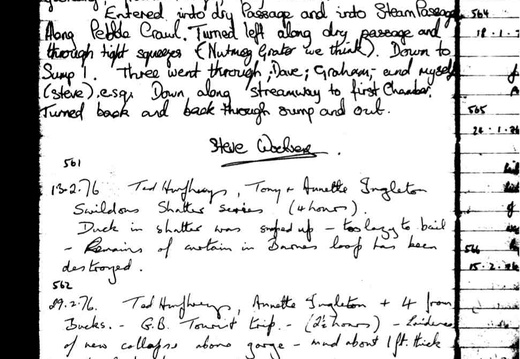 Entered into dry Passage and into Steam Passage
Along Pebble Crawl. Turned left along dry passage and
through tight squeezes (Nutmeg Grater we think). Down to
Sump 1. Three went through; Dave; Graham; and myself
(Steve).esq. Down along streamway to first Chamber.
Turned back and back through sump and out.
Steve
561
13-2.76 Ted Humphreys, Tony + Annette Ingleton
Swildons Shatter series (4 hours).
Duck in shatter was sumped up - too lazy to bail
- Remains of curtain in Barnes loop has been
destroyed.
562
29.2.76. Ted Humphreys, Annette Ingleton + 4 from
Bucks. - G.B. Tourist trip. - (2½ hours) -
of new collapse above gorge - mud about 1 ft. thick
564
18.1.
565
24.1.
566
15.2.